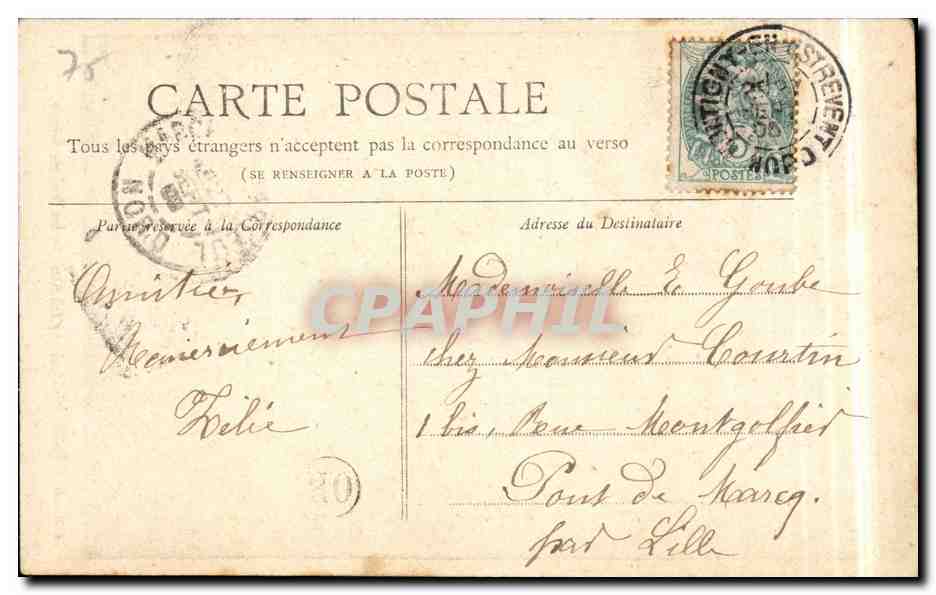 75
CARTE POSTALE
Tous les pays étrangers n'acceptent pas la correspondance au verso
(SE RENSEIGNER A LA POSTE)
Partie réservée à la Correspondance
Amitiés,
Remerciement
Zélie
Adresse du Destinataire
Mademoiselle E Goube
chez Monsieur Courtin
1 bis, Rue Montgolfier
Pont de Marcq.
par Lille
POSTES
MONTIGNY-EN-OSTREVENT
NORD
CPAPHIL